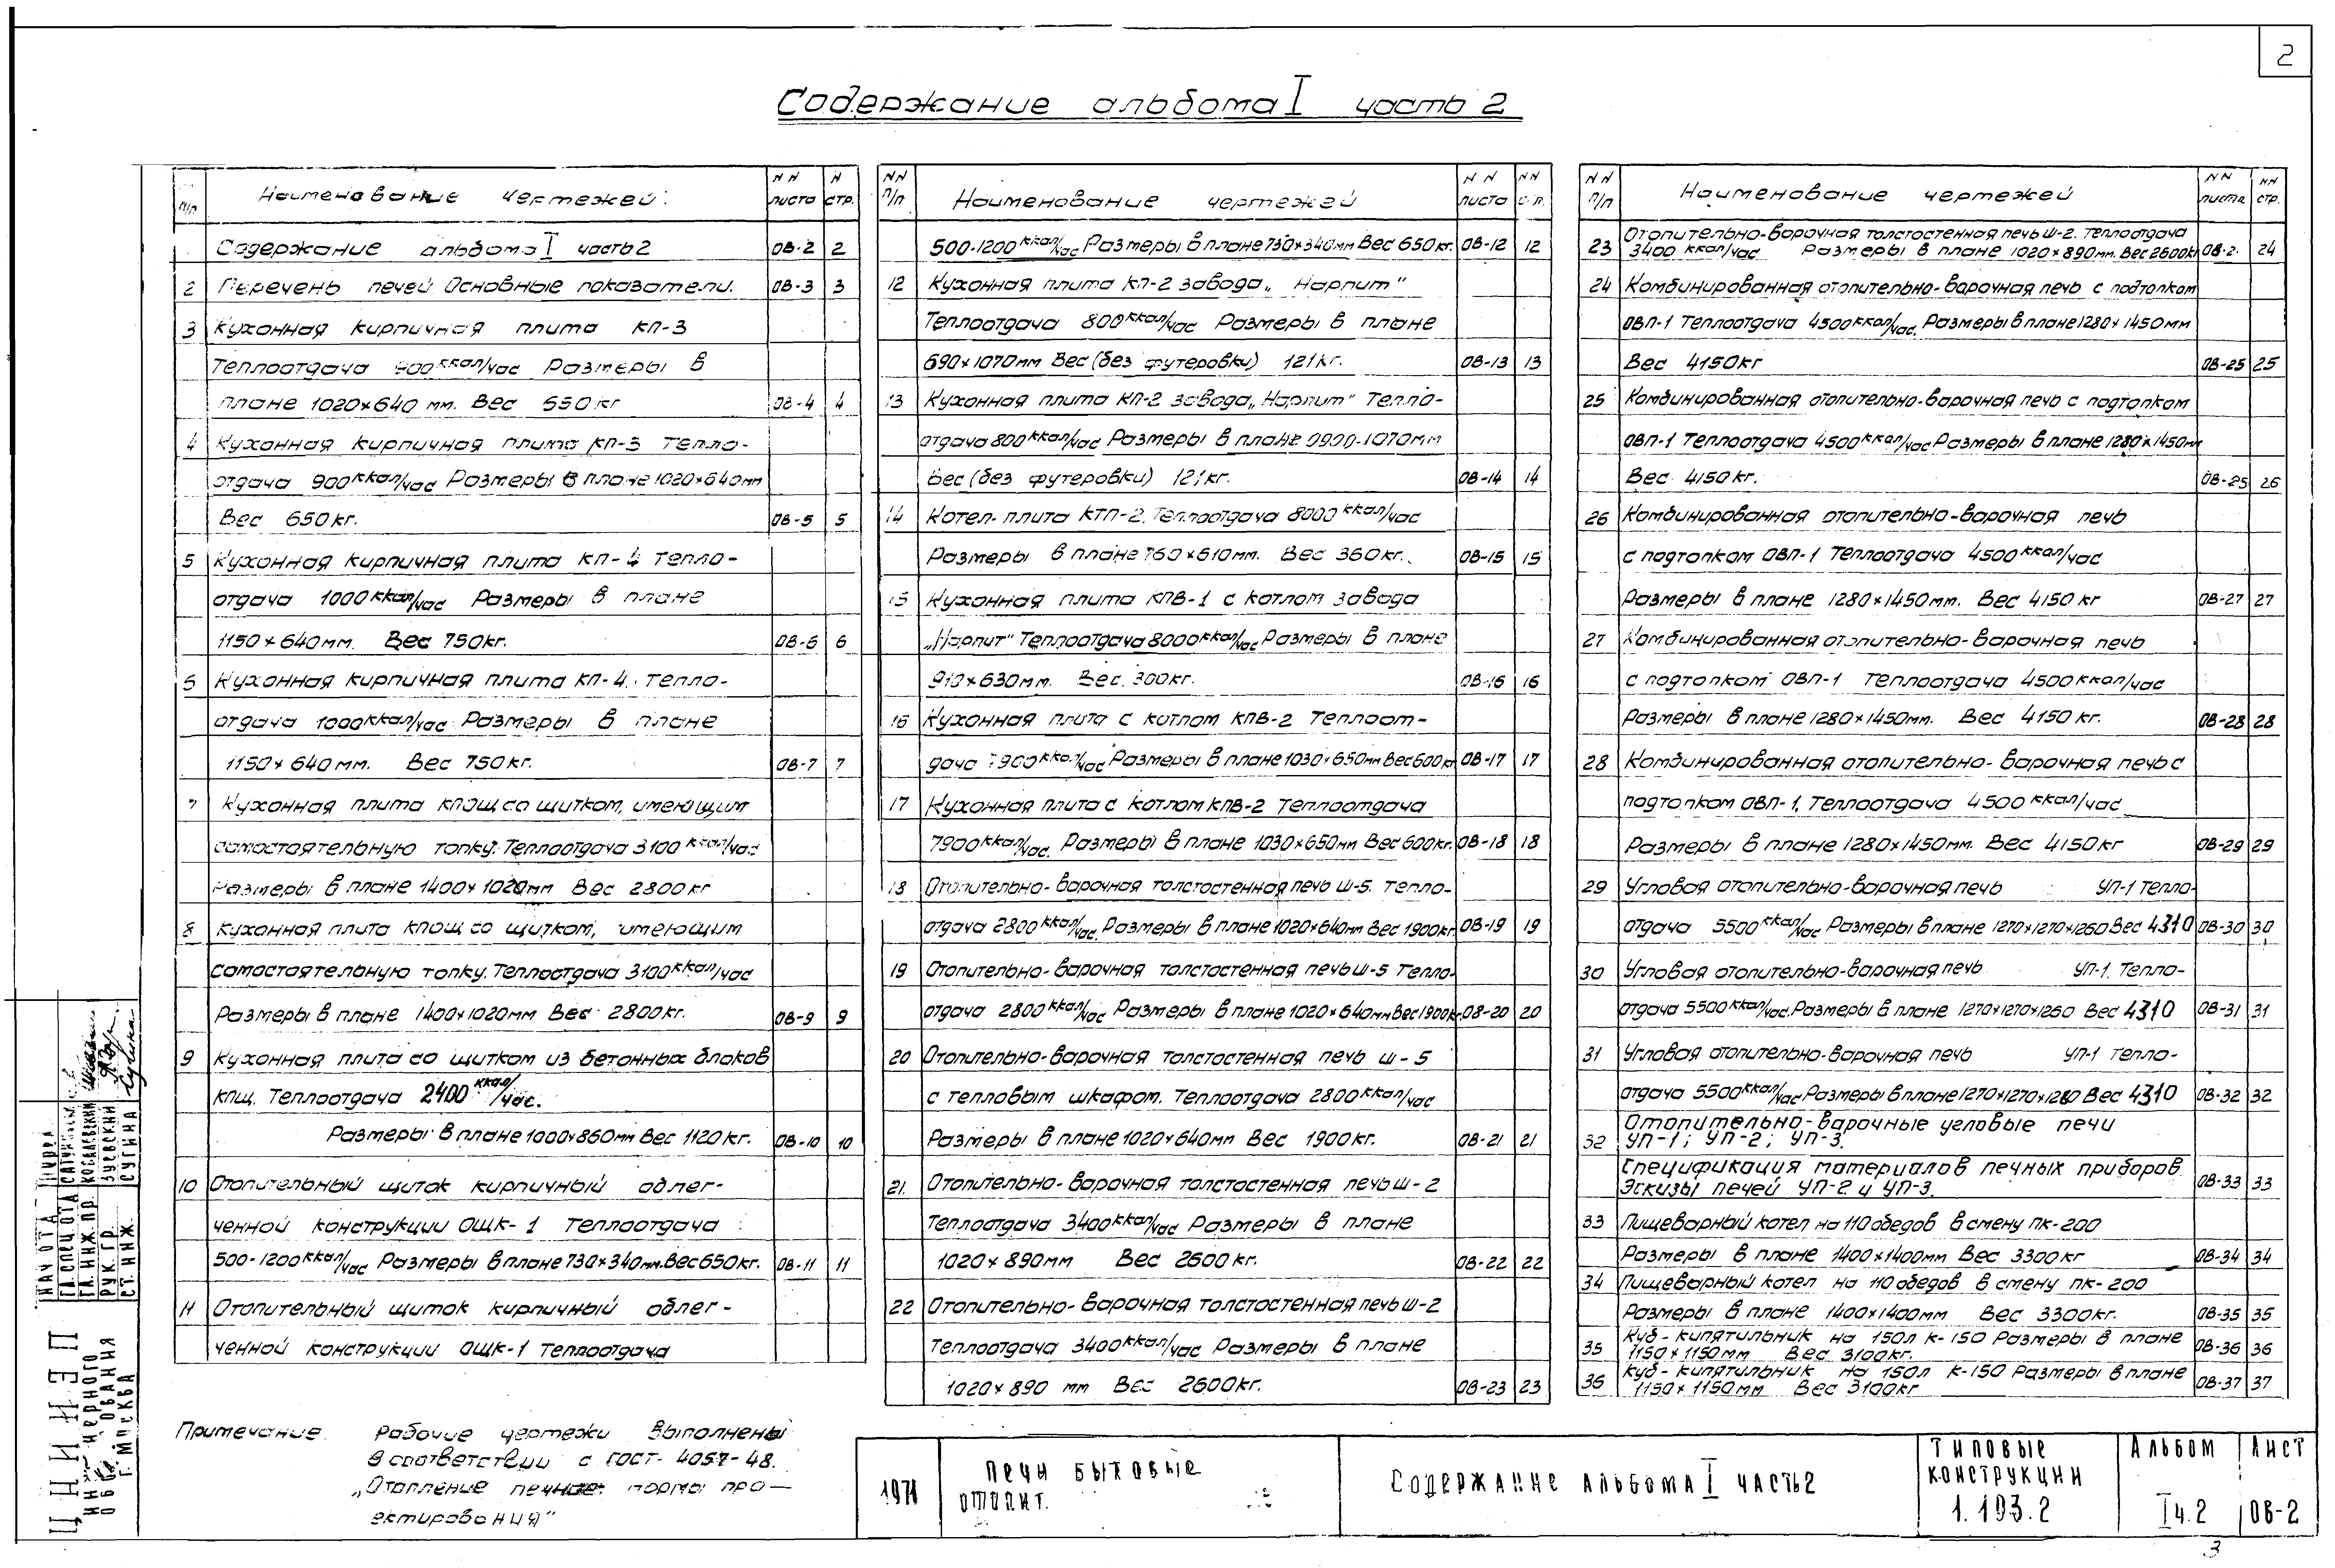 2
Содержание альбома I часть 2
п/п
Наименование чертежей
NN листа
N стр.
Содержание альбома I часть 2 ОВ-2 2
2 Перечень печей Основные показатели. ОВ-3 3
3 Кухонная кирпичная плита КП-3
Теплоотдача 900 ккал/час Размеры в
плане 1020×640 мм. Вес 650 кг ОВ-4 4
4 Кухонная кирпичная плита КП-3 Тепло-
отдача 900 ккал/час Размеры в плане 1020×640мм
Вес 650кг. ОВ-5 5
5 Кухонная кирпичная плита КП-4 Тепло-
отдача 1000 ккал/час Размеры в плане
1150×640мм. Вес 750кг. ОВ-6 6
6 Кухонная кирпичная плита КП-4. Тепло-
отдача 1000 ккал/час Размеры в плане
1150×640мм. Вес 750кг. ОВ-7 7
7 Кухонная плита КПОЩ со щитком, имеющим
самостоятельную топку. Теплоотдача 3100 ккал/час
Размеры в плане 1400×1020мм Вес 2800кг
8 Кухонная плита КПОЩ со щитком, имеющим
самостоятельную топку. Теплоотдача 3100 ккал/час
Размеры в плане 1400×1020мм Вес 2800кг. ОВ-9 9
9 Кухонная плита со щитком из бетонных блоков
КПЩ. Теплоотдача 2400 ккал/час.
Размеры в плане 1000×860мм Вес 1120кг. ОВ-10 10
10 Отопительный щиток кирпичный облег-
ченной конструкции ОЩК-1 Теплоотдача
500-1200 ккал/час Размеры в плане 730×340мм. Вес 650кг. ОВ-11 11
11 Отопительный щиток кирпичный облег-
ченной конструкции ОЩК-1 Теплоотдача
NN п/п
Наименование чертежей
NN листа
NN стр.
500-1200 ккал/час Размеры в плане 730×340мм Вес 650кг. ОВ-12 12
12 Кухонная плита КП-2 завода „Нарпит"
Теплоотдача 800 ккал/час Размеры в плане
690×1070мм Вес (без футеровки) 121кг. ОВ-13 13
13 Кухонная плита КП-2 завода „Нарпит" Тепло-
отдача 800 ккал/час Размеры в плане 0990-1070мм
Вес (без футеровки) 121кг. ОВ-14 14
14 Котел-плита КТП-2. Теплоотдача 8000 ккал/час
Размеры в плане 760×610мм. Вес 360кг. ОВ-15 15
15 Кухонная плита КПВ-1 с котлом завода
„Нарпит" Теплоотдача 8000 ккал/час Размеры в плане
910×630мм. Вес. 300кг. ОВ-16 16
16 Кухонная плита с котлом КПВ-2 Теплоот-
дача 7900 ккал/час Размеры в плане 1030×650мм Вес 600кг ОВ-17 17
17 Кухонная плита с котлом КПВ-2 Теплоотдача
7900 ккал/час. Размеры в плане 1030×650мм Вес 600кг. ОВ-18 18
18 Отопительно-варочная толстостенная печь Ш-5. Тепло-
отдача 2800 ккал/час. Размеры в плане 1020×640мм Вес 1900кг. ОВ-19 19
19 Отопительно-варочная толстостенная печь Ш-5 Тепло-
отдача 2800 ккал/час Размеры в плане 1020×640мм Вес 1900кг. ОВ-20 20
20 Отопительно-варочная толстостенная печь Ш-5
с тепловым шкафом. Теплоотдача 2800 ккал/час
Размеры в плане 1020×640мм Вес 1900кг. ОВ-21 21
21. Отопительно-варочная толстостенная печь Ш-2
Теплоотдача 3400 ккал/час Размеры в плане
1020×890мм Вес 2600кг. ОВ-22 22
22 Отопительно-варочная толстостенная печь Ш-2
Теплоотдача 3400 ккал/час Размеры в плане
1020×890 мм Вес 2600кг. ОВ-23 23
NN п/п
Наименование чертежей
NN листа
NN стр.
23 Отопительно-варочная толстостенная печь Ш-2. Теплоотдача
3400 ккал/час Размеры в плане 1020×890мм. Вес 2600кг ОВ-2. 24
24 Комбинированная отопительно-варочная печь с подтопком
ОВП-1 Теплоотдача 4500 ккал/час. Размеры в плане 1280×1450мм
Вес 4150кг ОВ-25 25
25 Комбинированная отопительно-варочная печь с подтопком
ОВП-1 Теплоотдача 4500 ккал/час Размеры в плане 1280×1450мм
Вес 4150кг. ОВ-25 26
26 Комбинированная отопительно-варочная печь
с подтопком ОВП-1 Теплоотдача 4500 ккал/час
Размеры в плане 1280×1450мм. Вес 4150 кг ОВ-27 27
27 Комбинированная отопительно-варочная печь
с подтопком ОВП-1 Теплоотдача 4500 ккал/час
Размеры в плане 1280×1450мм. Вес 4150 кг. ОВ-28 28
28 Комбинированная отопительно-варочная печь с
подтопком ОВП-1. Теплоотдача 4500 ккал/час
Размеры в плане 1280×1450мм. Вес 4150кг ОВ-29 29
29 Угловая отопительно-варочная печь УП-1 Тепло-
отдача 5500 ккал/час Размеры в плане 1270×1270×1260 Вес 4310 ОВ-30 30
30 Угловая отопительно-варочная печь УП-1. Тепло-
отдача 5500 ккал/час. Размеры в плане 1270×1270×1260 Вес 4310 ОВ-31 31
31 Угловая отопительно-варочная печь УП-1 Тепло-
отдача 5500 ккал/час Размеры в плане 1270×1270×1280 Вес 4310 ОВ-32 32
Отопительно-варочные угловые печи
32 УП-1; УП-2; УП-3.
Спецификация материалов печных приборов.
Эскизы печей УП-2 и УП-3. ОВ-33 33
33 Пищеварный котел на 110 обедов в смену ПК-200
Размеры в плане 1400×1400мм Вес 3300кг ОВ-34 34
34 Пищеварный котел на 110 обедов в смену ПК-200
Размеры в плане 1400×1400мм Вес 3300кг. ОВ-35 35
35 Куб-кипятильник на 150л К-150 Размеры в плане
1150×1150мм Вес 3100кг. ОВ-36 36
36 Куб-кипятильник на 150л К-150 Размеры в плане
1150×1150мм Вес 3100кг ОВ-37 37
Примечание. Рабочие чертежи выполнены
в соответствии с ГОСТ-4057-48.
„Отопление печное. нормы про-
ектирования"
НАЧ ОТА
ГЛ.СПЕЦ.ОТА
ГЛ.ИНЖ.ПР. КОВАЛЕВСКИЙ
РУК.ГР. ЗУЕВСКИЙ
СТ.ИНЖ. СУГИНА
ЦНИИЭП
ИНЖЕНЕРНОГО
ОБОРУДОВАНИЯ
Г. МОСКВА
1971
ПЕЧИ БЫТОВЫЕ
ОТОПИТ.
СОДЕРЖАНИЕ АЛЬБОМА I ЧАСТЬ 2
ТИПОВЫЕ
КОНСТРУКЦИИ
1.193.2
АЛЬБОМ
I ч.2
ЛИСТ
ОВ-2
3